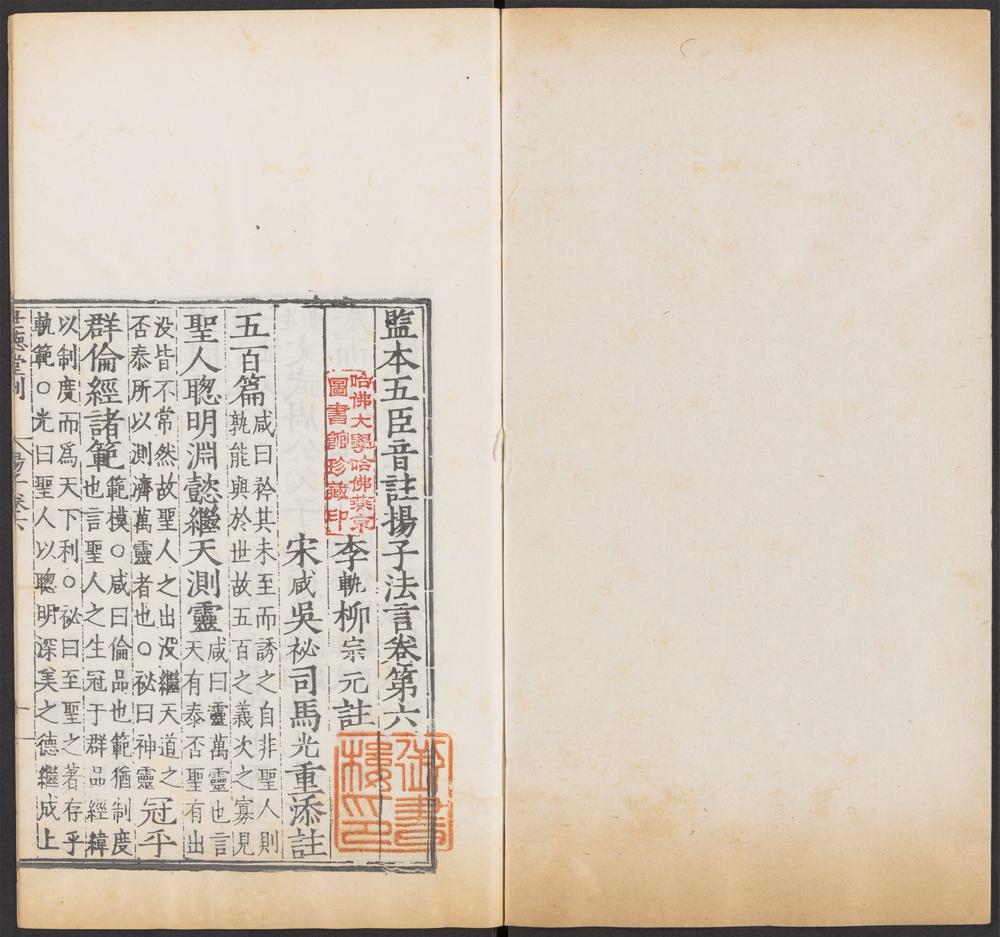 監本五臣音註揚子法言卷第六
李軌柳宗元註
宋咸吳祕司馬光重添註
五百篇咸曰衿其未至而誘之自非聖人則
孰能與於世故五百之義次之寡見
聖人聦明淵懿繼天測靈咸曰靈萬靈也言
天有泰否聖有出
没皆不常然故聖人之出没繼天道之
否泰所以測濟萬靈者也○祕曰神靈冠乎
群倫經諸範範模○咸曰倫品也範猶制度
也言聖人之生冠于群品經緯
以制度而爲天下利○祕曰至聖之著存乎
軌範○光曰聖人以聦明深美之德繼成上
世德堂刊
揚子卷六
一
哈佛大學哈佛燕京
圖書館珍藏印
御書
樓印